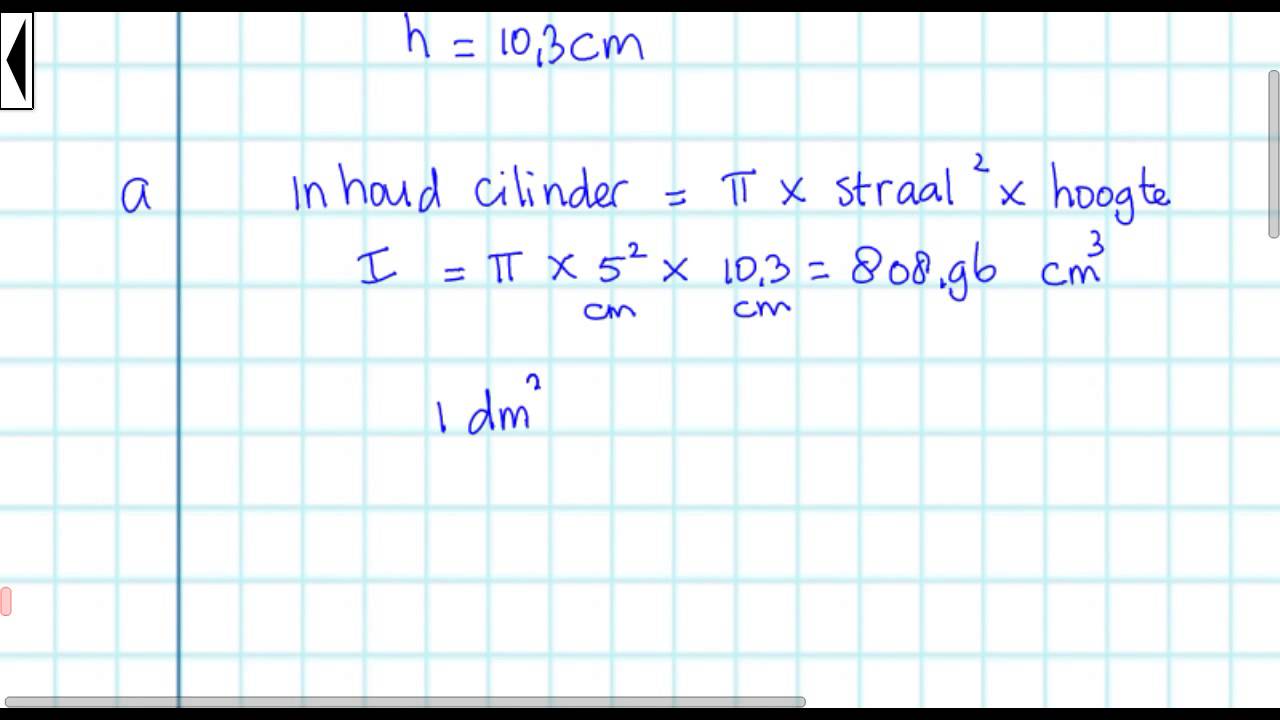 h = 10,3cm
a Inhoud cilinder = π × straal² × hoogte
I = π × 5² × 10,3 = 808,96 cm³
cm cm
1 dm²